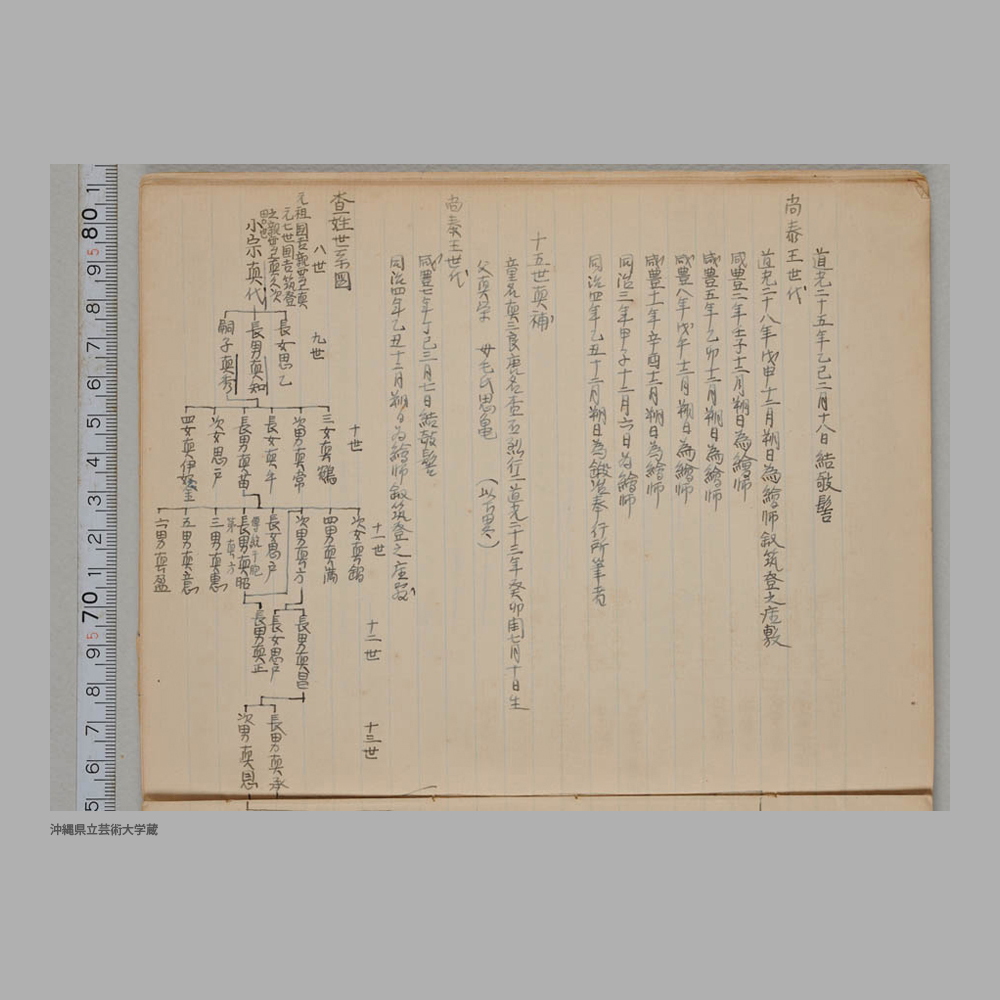 道光二十五年乙巳二月十八日結敬髻
尚泰王世代
道光二十八年戊申十二月朔日為繪師叙筑登之座敷
咸豊二年壬子十二月朔日為繪師
咸豊五年乙卯十二月朔日為繪師
咸豊八年戊午十二月朔日為繪師
咸豊十一年辛酉十二月朔日為繪師
同治三年甲子十二月六日為繪師
同治四年乙丑十二月朔日為鍛冶奉行所筆者
十五世真補
童名真三良唐名査五烈行一道光二十三年癸卯閏七月十日生
父真栄 母毛氏思亀 (以下畧)
尚泰王世代
咸豊七年丁巳三月七日結敬髻
同治四年乙丑十二月朔日為繪師叙筑登之座敷
査姓世系圖
八世
小宗真代
九世
長女思乙
長男真知
嗣子真秀
十世
三女真鶴
次男真常
長女真牛
長男真苗
次女思戸
四女真伊奴金
十一世
次女真鶴
四男真満
次男真方
長女思戸
長男真昭
三男真恵
五男真意
六男真盈
十二世
長男真昆
長女思戸
長男真正
十三世
長男真承
次男真恩
沖縄県立芸術大学蔵